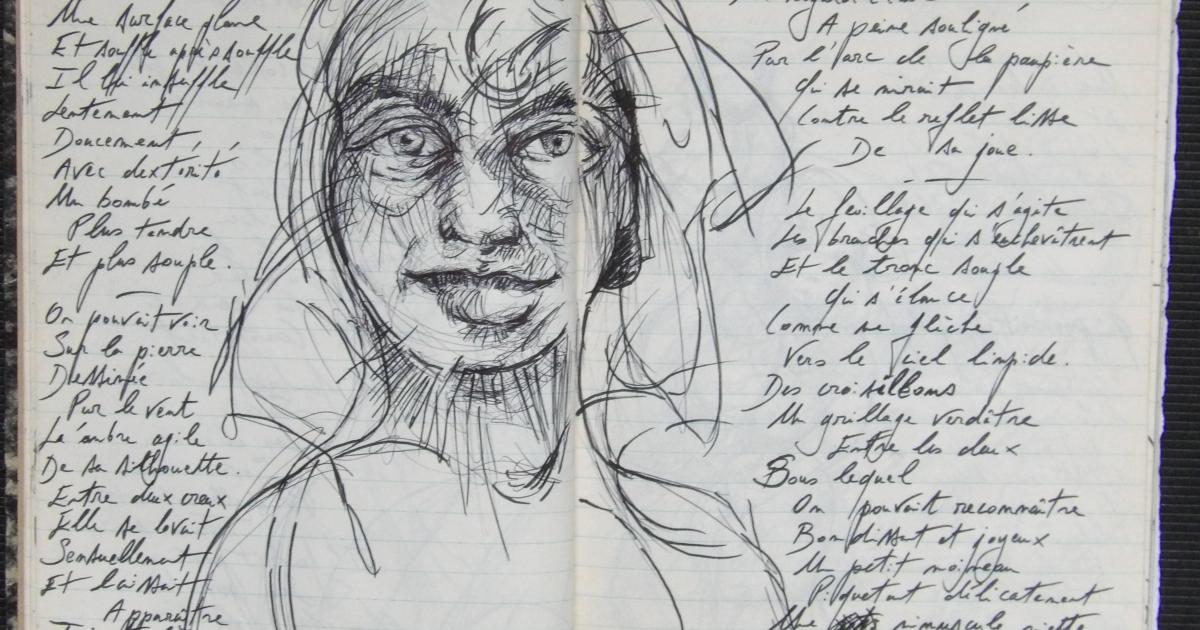 Une surface plane
Et souffle après souffle
Il lui insuffle
Lentement
Doucement
Avec dextérité
Un bombé
Plus tendre
Et plus souple.
On pouvait voir
Sur la pierre
Dessinée
Par le vent
L'ombre agile
De sa silhouette.
Entre deux creux
Elle se levait
Sensuellement
Et laissait
Apparaître
A peine souligné
Par l'arc de la paupière
Qui se mirait
Contre le reflet lisse
De sa joue.
Le feuillage qui s'agite
Les branches qui s'enchevêtrent
Et le tronc souple
Qui s'élance
Comme une flèche
Vers le ciel limpide.
Des croisillons
Un grillage verdâtre
Entre les deux
Sous lequel
On pouvait reconnaître
Bondissant et joyeux
Un petit moineau
Piquetant délicatement
Une minuscule miette